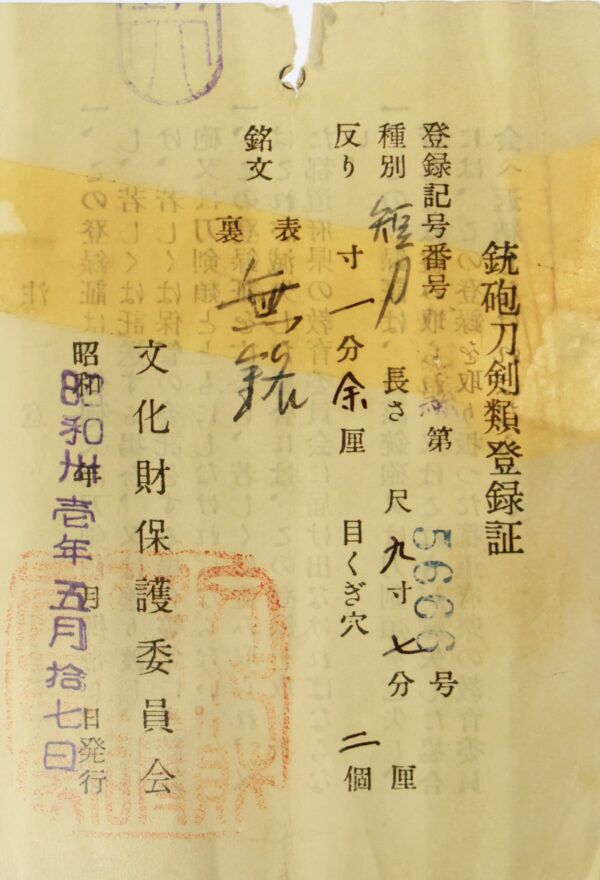 銃砲刀剣類登録証
登録記号番号 第 5666 号
種別 短刀 長さ 尺 九寸 七分 厘
反り 寸 一分 余厘 目くぎ穴 二個
銘文 表 無銘
裏
文化財保護委員会
昭和 年 月 日発行
昭和卅壱年五月拾七日